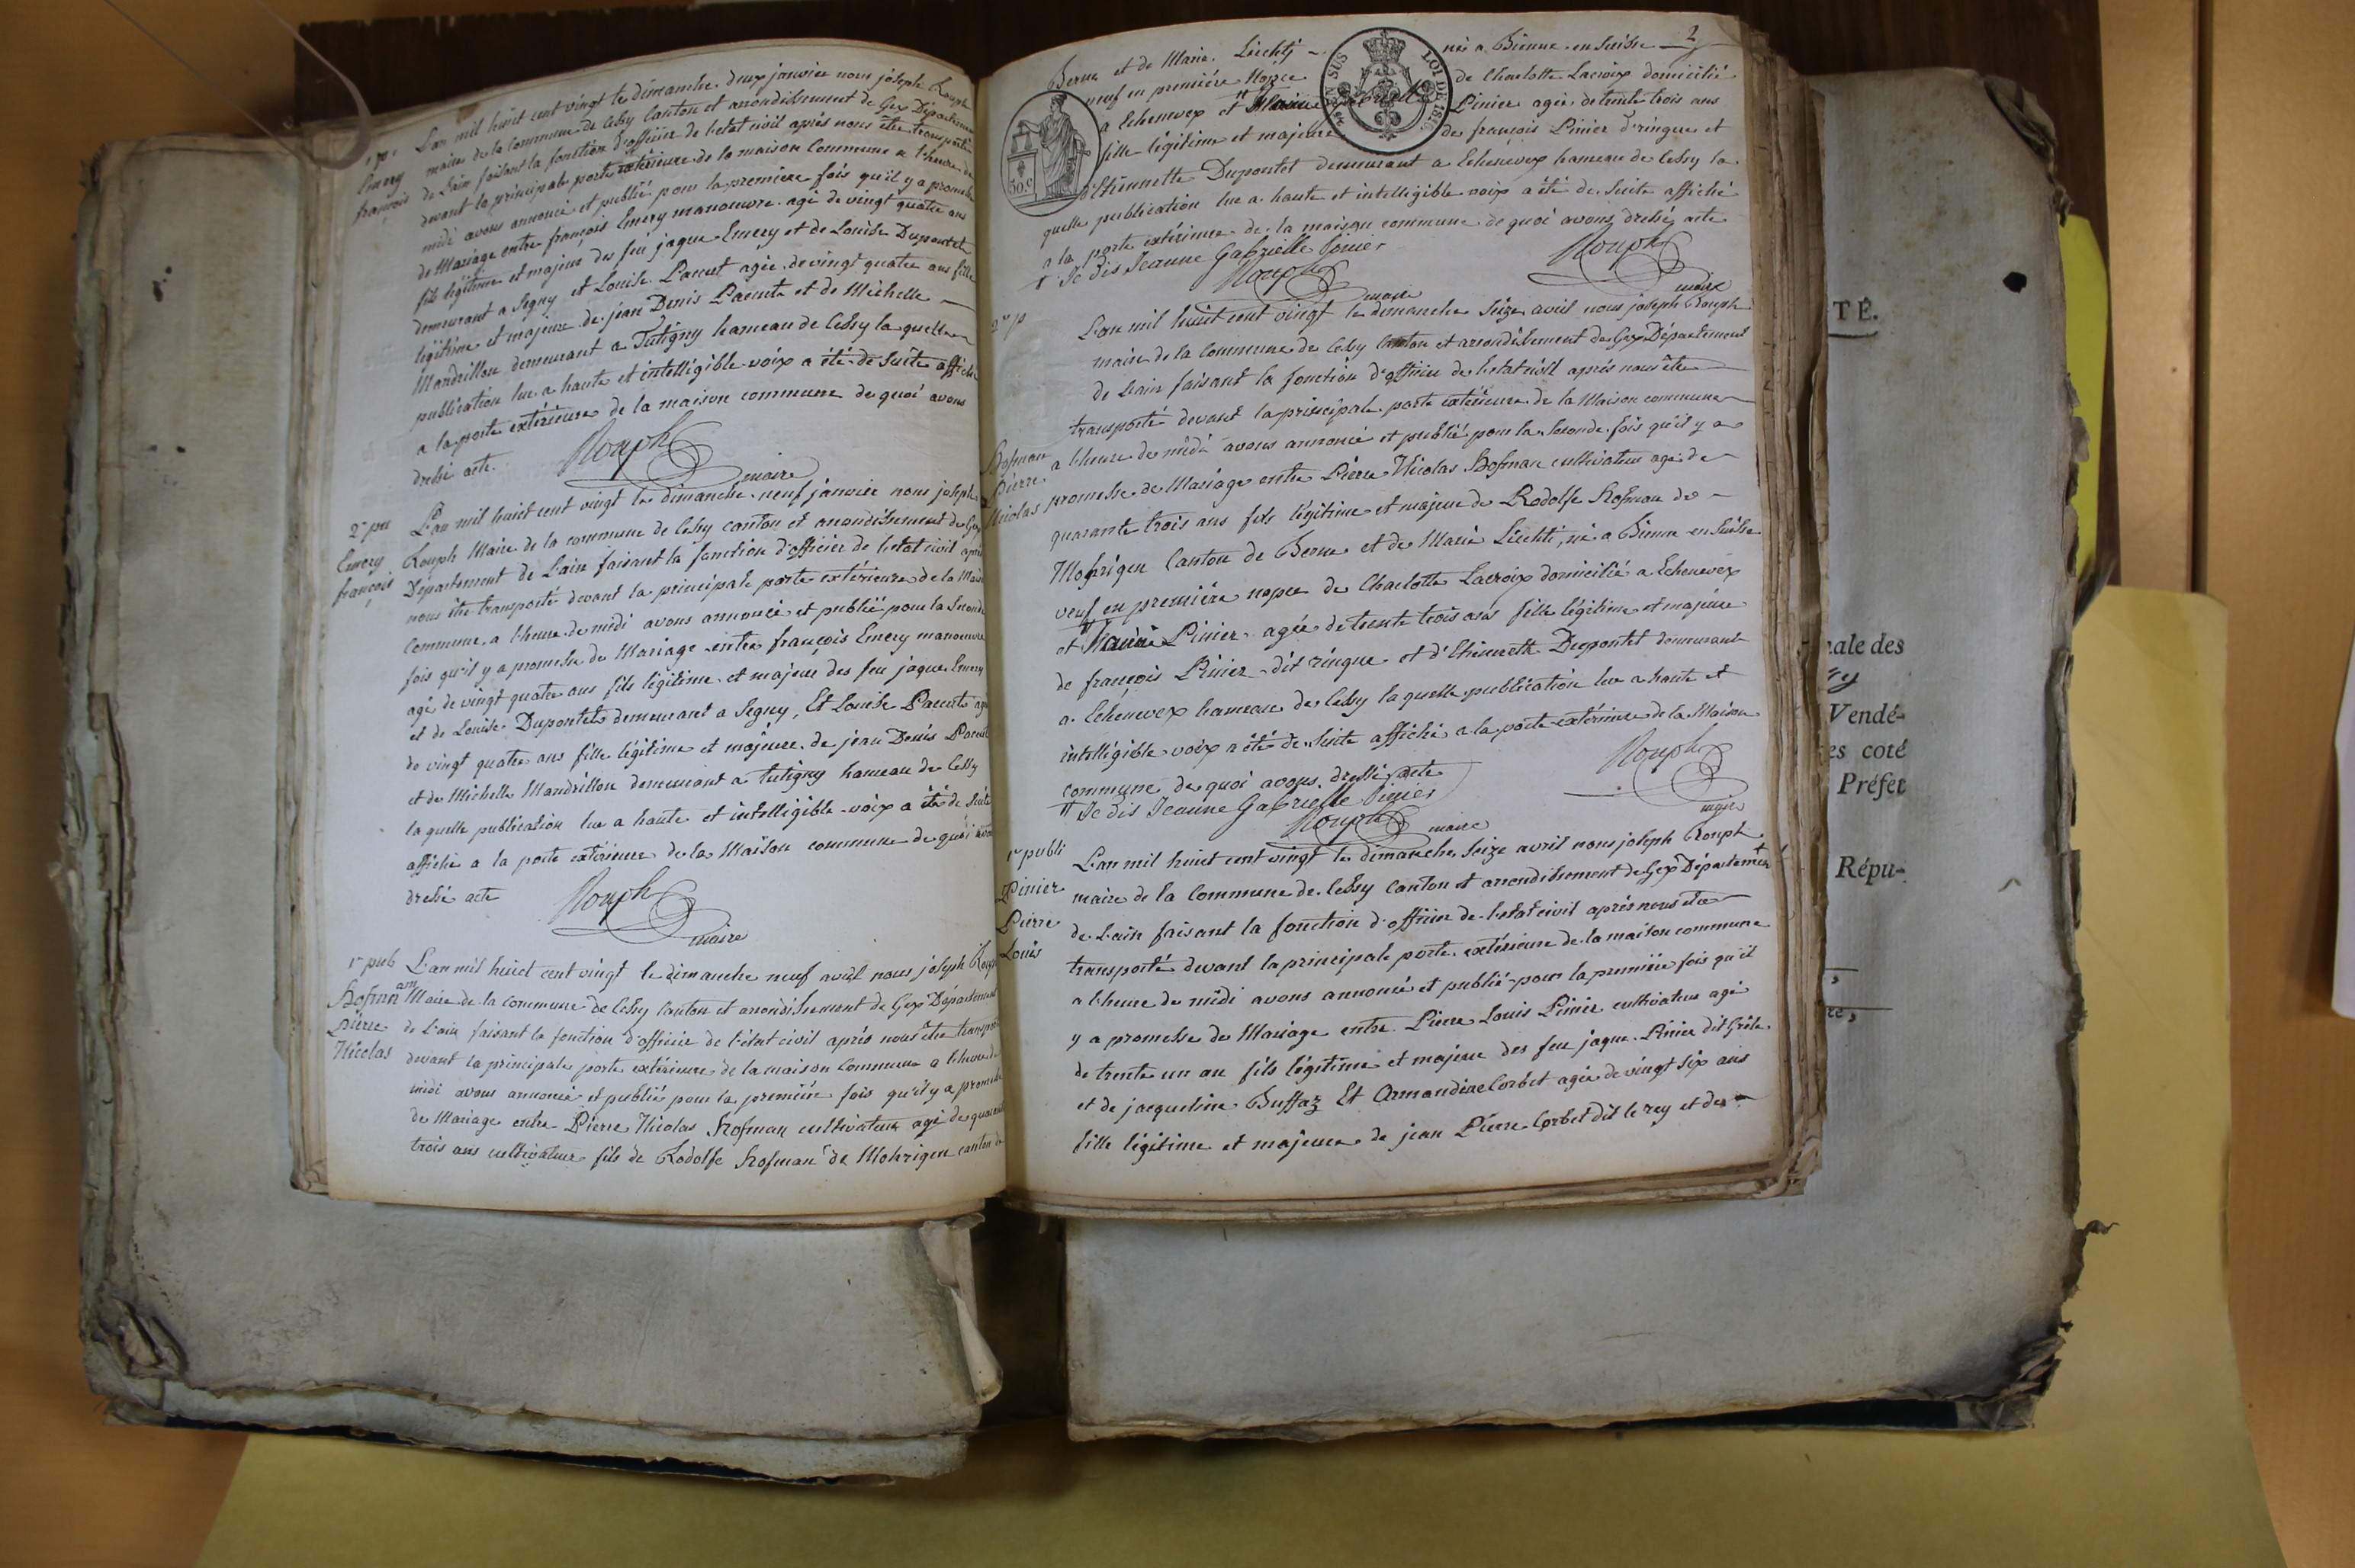 1re p
Emery
françois
L'an mil huit cent vingt le dimanche deux janvier nous joseph Rouph
maire de la commune de Cessy Canton et arrondissement de Gex Département
de L'ain faisant la fonction d'officier de l'etat civil après nous être transporté
devant la principale porte extérieure de la maison Commune a l'heure de
midi avons annoncé et publié pour la première fois qu'il y a promesse
de Mariage entre françois Emery manoeuvre agé de vingt quatre ans
fils légitime et majeur des feu jaque Emery et de Louise Dupontet
demeurant a Segny et Louise Pacout agée de vingt quatre ans fille
légitime et majeure de jean Denis Pacout et de Michelle
Mandrillon demeurant a Tutigny hameau de Cessy la quelle
publication lue a haute et intelligible voix a été de suite affiché
a la porte extérieure de la maison commune de quoi avons
dressé acte.
Rouph
maire
2e pu
Emery
françois
L'an mil huit cent vingt le dimanche neuf janvier nous joseph
Rouph Maire de la commune de Cessy canton et arrondissement de Gex
Département de L'ain faisant la fonction d'officier de l'etat civil après
nous être transporté devant la principale porte extérieure de la Maison
Commune a l'heure de midi avons annoncé et publié pour la Seconde
fois qu'il y a promesse de Mariage entre françois Emery manoeuvre
agé de vingt quatre ans fils légitime et majeur des feu jaque Emery
et de Louise Dupontet demeurant a Segny, Et Louise Pacout agée
de vingt quatre ans fille légitime et majeure de jean Denis Pacout
et de Michelle Mandrillon demeurant a Tutigny hameau de Cessy
la quelle publication lue a haute et intelligible voix a été de suite
affiché a la porte extérieure de la Maison commune de quoi avons
dressé acte
Rouph
maire
1re pub
Hofman
Pierre
Nicolas
L'an mil huit cent vingt le dimanche neuf avril nous joseph Rouph
Maire de la commune de Cessy Canton et arrondissement de Gex Département
de L'ain faisant la fonction d'officier de l'etat civil après nous être transporté
devant la principale porte extérieure de la maison Commune a l'heure de
midi avons annoncé et publié pour la première fois qu'il y a promesse
de Mariage entre Pierre Nicolas Hofman cultivateur agé de quarante
trois ans cultivateur fils de Rodolfe Hofman de Mohrigen canton de
2
Berne et de Marie Liechtj né a Bienne en Suisse
veuf en première Nopce de Charlotte Lacroix domicilié
a Echenevex et Pinier agée de trente trois ans
fille légitime et majeure de françois Pinier d'ringue et
d'Ethiennette Dupontet demeurant a Echenevex hameau de Cessy la
quelle publication lue a haute et intelligible voix a été de Suite affiché
a la porte extérieure de la maison commune de quoi avons dressé acte
# Je dis Jeanne Gabrielle Pinier
Rouph
maire
Rouph
maire
50.c
EN SUS
LOI DE 1816
2e p
Hofman
Pierre
Nicolas
L'an mil huit cent vingt le dimanche Seize avril nous joseph Rouph
maire de la Commune de Cessy Canton et arrondissement de Gex Département
de L'ain faisant la fonction d'officier de l'etat civil après nous être
transporté devant la principale porte extérieure de la Maison commune
a l'heure de midi avons annoncé et publié pour la Seconde fois qu'il y a
promesse de Mariage entre Pierre Nicolas Hofman cultivateur agé de
quarante trois ans fils légitime et majeur de Rodolfe Hofman de
Mohrigen Canton de Berne et de Marie Liechti, né a Bienne en Suisse
veuf en première nopce de Charlotte Lacroix domicilié a Echenevex
et # Pinier agée de trente trois ans fille légitime et majeure
de françois Pinier dit ringue et d'Ethiennette Dupontet demeurant
a Echenevex hameau de Cessy la quelle publication lue a haute et
intelligible voix a été de Suite affiché a la porte extérieure de la Maison
commune de quoi avons dressé acte
# Je dis Jeanne Gabrielle Pinier
Rouph
maire
Rouph
maire
1re publi
Pinier
Pierre
Louis
L'an mil huit cent vingt le dimanche Seize avril nous joseph Rouph
maire de la Commune de Cessy Canton et arrondissement de Gex Département
de L'ain faisant la fonction d'officier de l'etat civil après nous etre
transporté devant la principale porte extérieure de la maison commune
a l'heure de midi avons annoncé et publié pour la première fois qu'il
y a promesse de Mariage entre Pierre Louis Pinier cultivateur agé
de trente un an fils légitime et majeur des feu jaque Pinier dit Grile
et de jacqueline Buffaz Et Armandine Corbet agée de vingt Six ans
fille légitime et majeure de jean Pierre Corbet dit le rey et de
TÉ.
nale des
Vendé-
es coté
Préfet
Répu-